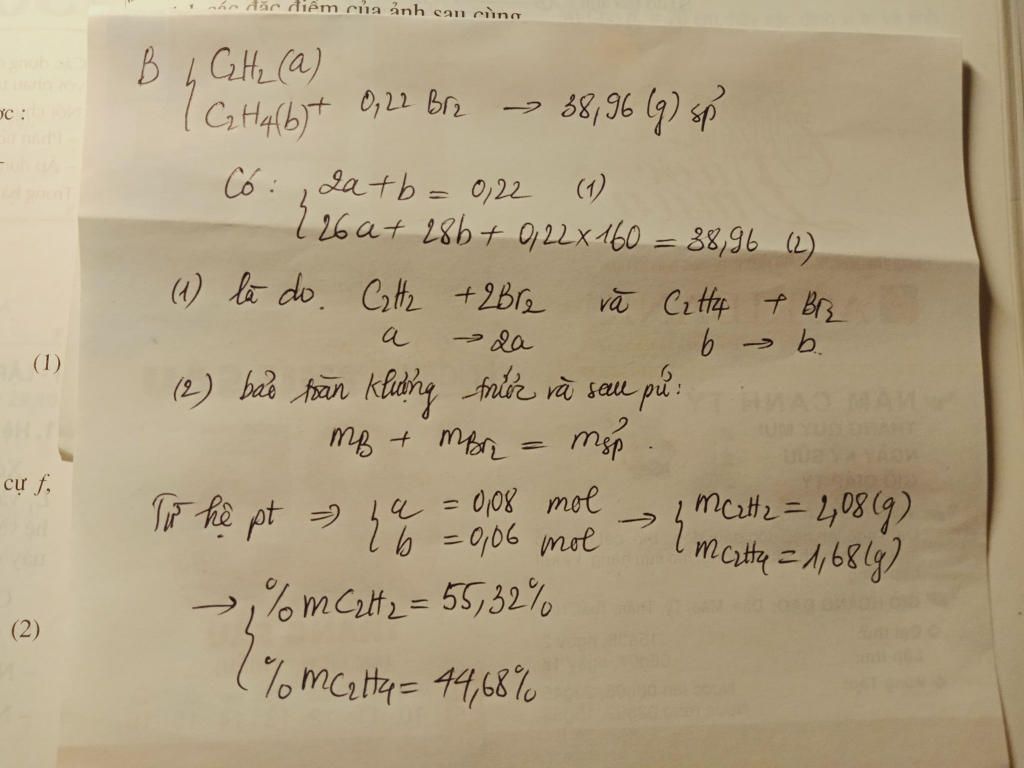 các đặc điểm của ảnh sau cùng
B { C2H2 (a)
C2H4(b) + 0,22 Br2 → 38,96 (g) sp̉
Có : { 2a + b = 0,22 (1)
26a + 28b + 0,22 × 160 = 38,96 (2)
(1) là do. C2H2 + 2Br2 và C2H4 + Br2
a → 2a b → b.
(2) bảo toàn klượng trước và sau pứ :
mB + mBr2 = msp̉ .
Từ hệ pt ⇒ { a = 0,08 mol → { mC2H2 = 2,08 (g)
b = 0,06 mol mC2H4 = 1,68 (g)
→ { % mC2H2 = 55,32%
% mC2H4 = 44,68%
(1)
cự f,
(2)
NĂM CANH TÝ